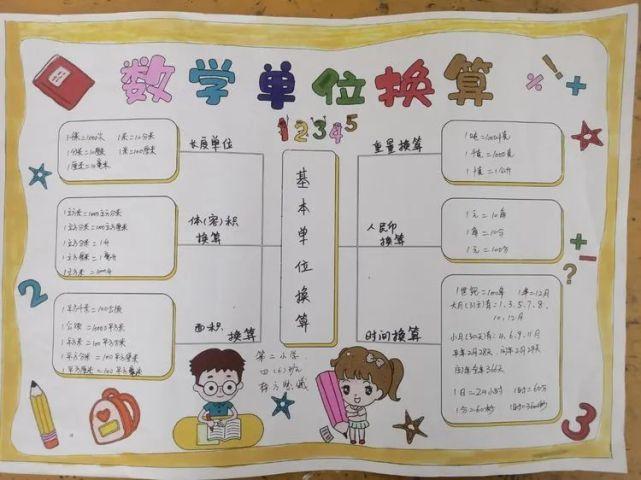 数学单位换算
12345
长度单位
1千米=1000米 1米=10分米
1分米=10厘米 1米=100厘米
1厘米=10毫米
体(容)积
换算
1立方米=1000立方分米
1立方分米=1000立方厘米
1立方分米=1升
1立方厘米=1毫升
1立方米=1000升
面积
换算
1平方千米=100公顷
1公顷=10000平方米
1平方米=100平方分米
1平方分米=100平方厘米
1平方厘米=100平方毫米
基本单位换算
重量换算
1吨=1000千克
1千克=1000克
1千克=1公斤
人民币
换算
1元=10角
1角=10分
1元=100分
时间换算
1世纪=100年 1年=12月
大月(31天)有:1、3、5、7、8、
10、12月
小月(30天)有:4、6、9、11月
平年2月28天 闰年2月29天
闰年全年366天
1日=24小时 1时=60分
1分=60秒 1时=3600秒
第二小学
四(6)班
2
3